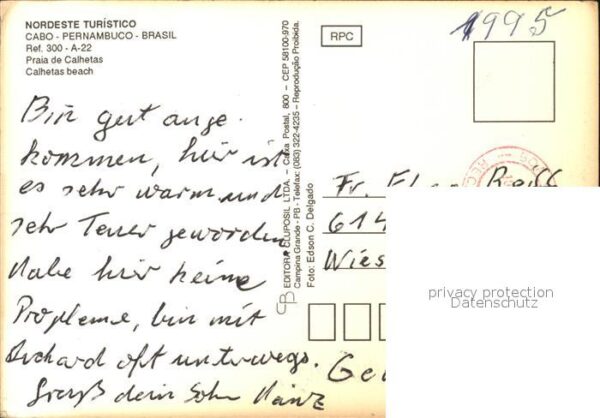 NORDESTE TURÍSTICO
CABO - PERNAMBUCO - BRASIL
Ref. 300 - A-22
Praia de Calhetas
Calhetas beach
RPC
1995
Bin gut ange
kommen, hier ist
es sehr warm und
sehr Teuer geworden
Habe hier keine
Propleme, bin mit
Richard oft unterwegs.
Gruß dein Sohn Heinz
EDITORA CLUPOSIL LTDA. - Caixa Postal, 800 - CEP 58100-970
Campina Grande - PB - Telefax: (083) 322-4235 - Reprodução Proibida.
Foto: Edson C. Delgado
Fr.
614
Wies
Ge
privacy protection
Datenschutz